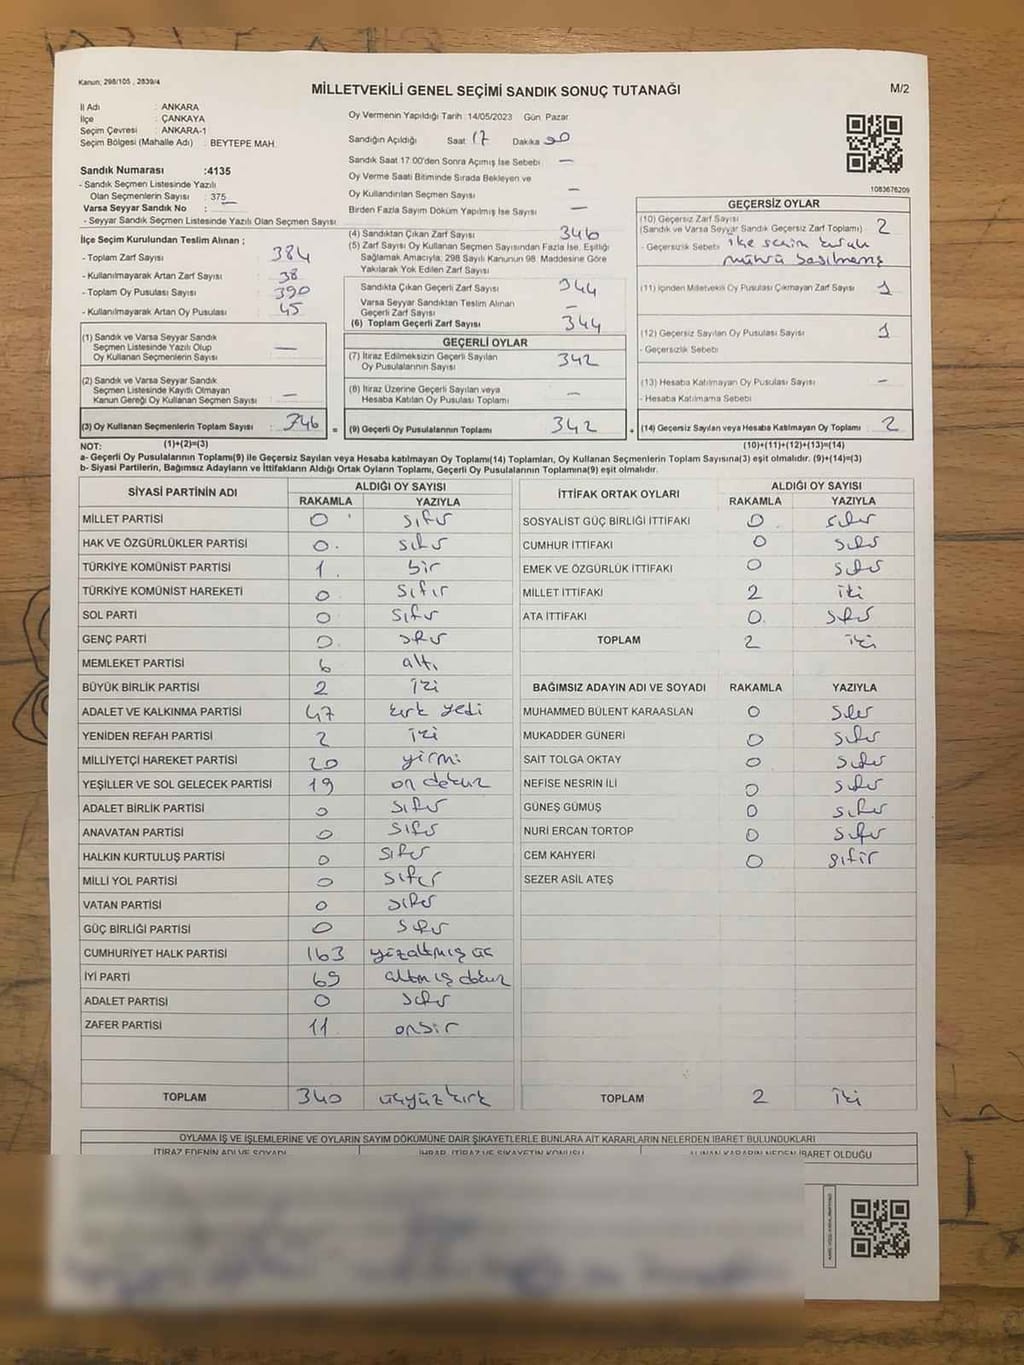 Kanun; 298/105 , 2839/4
MİLLETVEKİLİ GENEL SEÇİMİ SANDIK SONUÇ TUTANAĞI
M/2
İl Adı : ANKARA
İlçe : ÇANKAYA
Seçim Çevresi : ANKARA-1
Seçim Bölgesi (Mahalle Adı) : BEYTEPE MAH.
Sandık Numarası :4135
- Sandık Seçmen Listesinde Yazılı
Olan Seçmenlerin Sayısı : 375
Varsa Seyyar Sandık No :
- Seyyar Sandık Seçmen Listesinde Yazılı Olan Seçmen Sayısı
Oy Vermenin Yapıldığı Tarih :14/05/2023 Gün: Pazar
Sandığın Açıldığı Saat 17 Dakika
Sandık Saat 17:00'den Sonra Açılmış İse Sebebi: —
Oy Verme Saati Bitiminde Sırada Bekleyen ve
Oy Kullandırılan Seçmen Sayısı —
Birden Fazla Sayım Döküm Yapılmış İse Sayısı —
1083676209
İlçe Seçim Kurulundan Teslim Alınan ;
- Toplam Zarf Sayısı : 384
- Kullanılmayarak Artan Zarf Sayısı : 38
- Toplam Oy Pusulası Sayısı : 390
- Kullanılmayarak Artan Oy Pusulası : 45
(1) Sandık ve Varsa Seyyar Sandık
Seçmen Listesinde Yazılı Olup
Oy Kullanan Seçmenlerin Sayısı : —
(2) Sandık ve Varsa Seyyar Sandık
Seçmen Listesinde Kayıtlı Olmayan
Kanun Gereği Oy Kullanan Seçmen Sayısı : —
(3) Oy Kullanan Seçmenlerin Toplam Sayısı : 346
(4) Sandıktan Çıkan Zarf Sayısı 346
(5) Zarf Sayısı Oy Kullanan Seçmen Sayısından Fazla İse, Eşitliği
Sağlamak Amacıyla; 298 Sayılı Kanunun 98. Maddesine Göre
Yakılarak Yok Edilen Zarf Sayısı
Sandıkta Çıkan Geçerli Zarf Sayısı 344
Varsa Seyyar Sandıktan Teslim Alınan
Geçerli Zarf Sayısı —
(6) Toplam Geçerli Zarf Sayısı 344
GEÇERLİ OYLAR
(7) İtiraz Edilmeksizin Geçerli Sayılan
Oy Pusulalarının Sayısı : 342
(8) İtiraz Üzerine Geçerli Sayılan veya
Hesaba Katılan Oy Pusulası Toplamı : —
= (9) Geçerli Oy Pusulalarının Toplamı : 342
GEÇERSİZ OYLAR
(10) Geçersiz Zarf Sayısı
(Sandık ve Varsa Seyyar Sandık Geçersiz Zarf Toplamı) : 2
- Geçersizlik Sebebi: ilçe seçim kurulu
mührü basılmamış
(11) İçinden Milletvekili Oy Pusulası Çıkmayan Zarf Sayısı : 1
(12) Geçersiz Sayılan Oy Pusulası Sayısı : 1
- Geçersizlik Sebebi
(13) Hesaba Katılmayan Oy Pusulası Sayısı : —
- Hesaba Katılmama Sebebi
+ (14) Geçersiz Sayılan veya Hesaba Katılmayan Oy Toplamı : 2
NOT: (1)+(2)=(3) (10)+(11)+(12)+(13)=(14)
a- Geçerli Oy Pusulalarının Toplamı(9) ile Geçersiz Sayılan veya Hesaba katılmayan Oy Toplamı(14) Toplamları, Oy Kullanan Seçmenlerin Toplam Sayısına(3) eşit olmalıdır. (9)+(14)=(3)
b- Siyasi Partilerin, Bağımsız Adayların ve İttifakların Aldığı Ortak Oyların Toplamı, Geçerli Oy Pusulalarının Toplamına(9) eşit olmalıdır.
SİYASİ PARTİNİN ADI ALDIĞI OY SAYISI
RAKAMLA YAZIYLA
MİLLET PARTİSİ 0 sıfır
HAK VE ÖZGÜRLÜKLER PARTİSİ 0 sıfır
TÜRKİYE KOMÜNİST PARTİSİ 1 bir
TÜRKİYE KOMÜNİST HAREKETİ 0 sıfır
SOL PARTİ 0 sıfır
GENÇ PARTİ 0 sıfır
MEMLEKET PARTİSİ 6 altı
BÜYÜK BİRLİK PARTİSİ 2 iki
ADALET VE KALKINMA PARTİSİ 47 kırk yedi
YENİDEN REFAH PARTİSİ 2 iki
MİLLİYETÇİ HAREKET PARTİSİ 20 yirmi
YEŞİLLER VE SOL GELECEK PARTİSİ 19 on dokuz
ADALET BİRLİK PARTİSİ 0 sıfır
ANAVATAN PARTİSİ 0 sıfır
HALKIN KURTULUŞ PARTİSİ 0 sıfır
MİLLİ YOL PARTİSİ 0 sıfır
VATAN PARTİSİ 0 sıfır
GÜÇ BİRLİĞİ PARTİSİ 0 sıfır
CUMHURİYET HALK PARTİSİ 163 yüzaltmış üç
İYİ PARTİ 69 altmış dokuz
ADALET PARTİSİ 0 sıfır
ZAFER PARTİSİ 11 onbir
TOPLAM 340 üçyüz kırk
İTTİFAK ORTAK OYLARI ALDIĞI OY SAYISI
RAKAMLA YAZIYLA
SOSYALİST GÜÇ BİRLİĞİ İTTİFAKI 0 sıfır
CUMHUR İTTİFAKI 0 sıfır
EMEK VE ÖZGÜRLÜK İTTİFAKI 0 sıfır
MİLLET İTTİFAKI 2 iki
ATA İTTİFAKI 0 sıfır
TOPLAM 2 iki
BAĞIMSIZ ADAYIN ADI VE SOYADI RAKAMLA YAZIYLA
MUHAMMED BÜLENT KARAASLAN 0 sıfır
MUKADDER GÜNERİ 0 sıfır
SAİT TOLGA OKTAY 0 sıfır
NEFİSE NESRİN İLİ 0 sıfır
GÜNEŞ GÜMÜŞ 0 sıfır
NURİ ERCAN TORTOP 0 sıfır
CEM KAHYERİ 0 sıfır
SEZER ASİL ATEŞ
TOPLAM 2 iki
OYLAMA İŞ VE İŞLEMLERİNE VE OYLARIN SAYIM DÖKÜMÜNE DAİR ŞİKAYETLERLE BUNLARA AİT KARARLARIN NELERDEN İBARET BULUNDUKLARI
İTİRAZ EDENİN ADI VE SOYADI İHBAR, İTİRAZ VE ŞİKAYETİN KONUSU ALINAN KARARIN NEDEN İBARET OLDUĞU